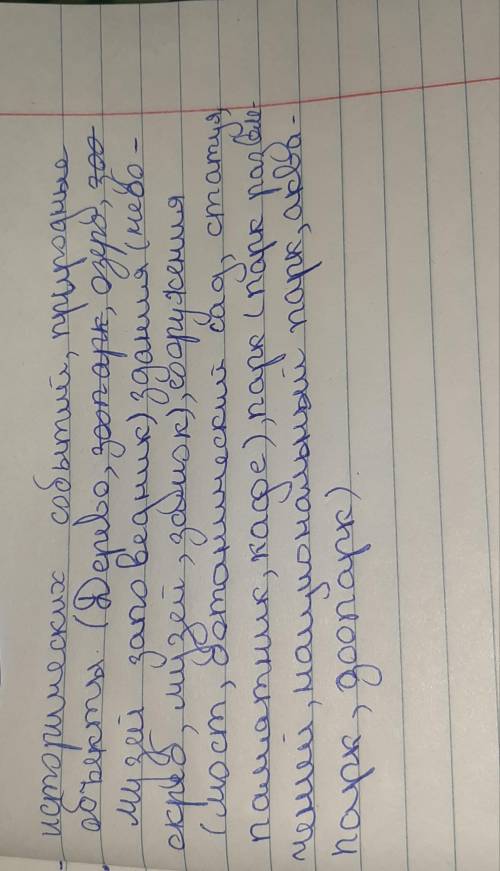 исторических событий, природные
объекты. (Дерево, зоопарк, озеро,
музей заповедник) здания (небо-
скрёб, музей, замок), сооружения
(мост, ботанический сад, статуя,
памятник, кафе), парк (парк развле-
чений, национальный парк, аква-
парк, зоопарк)